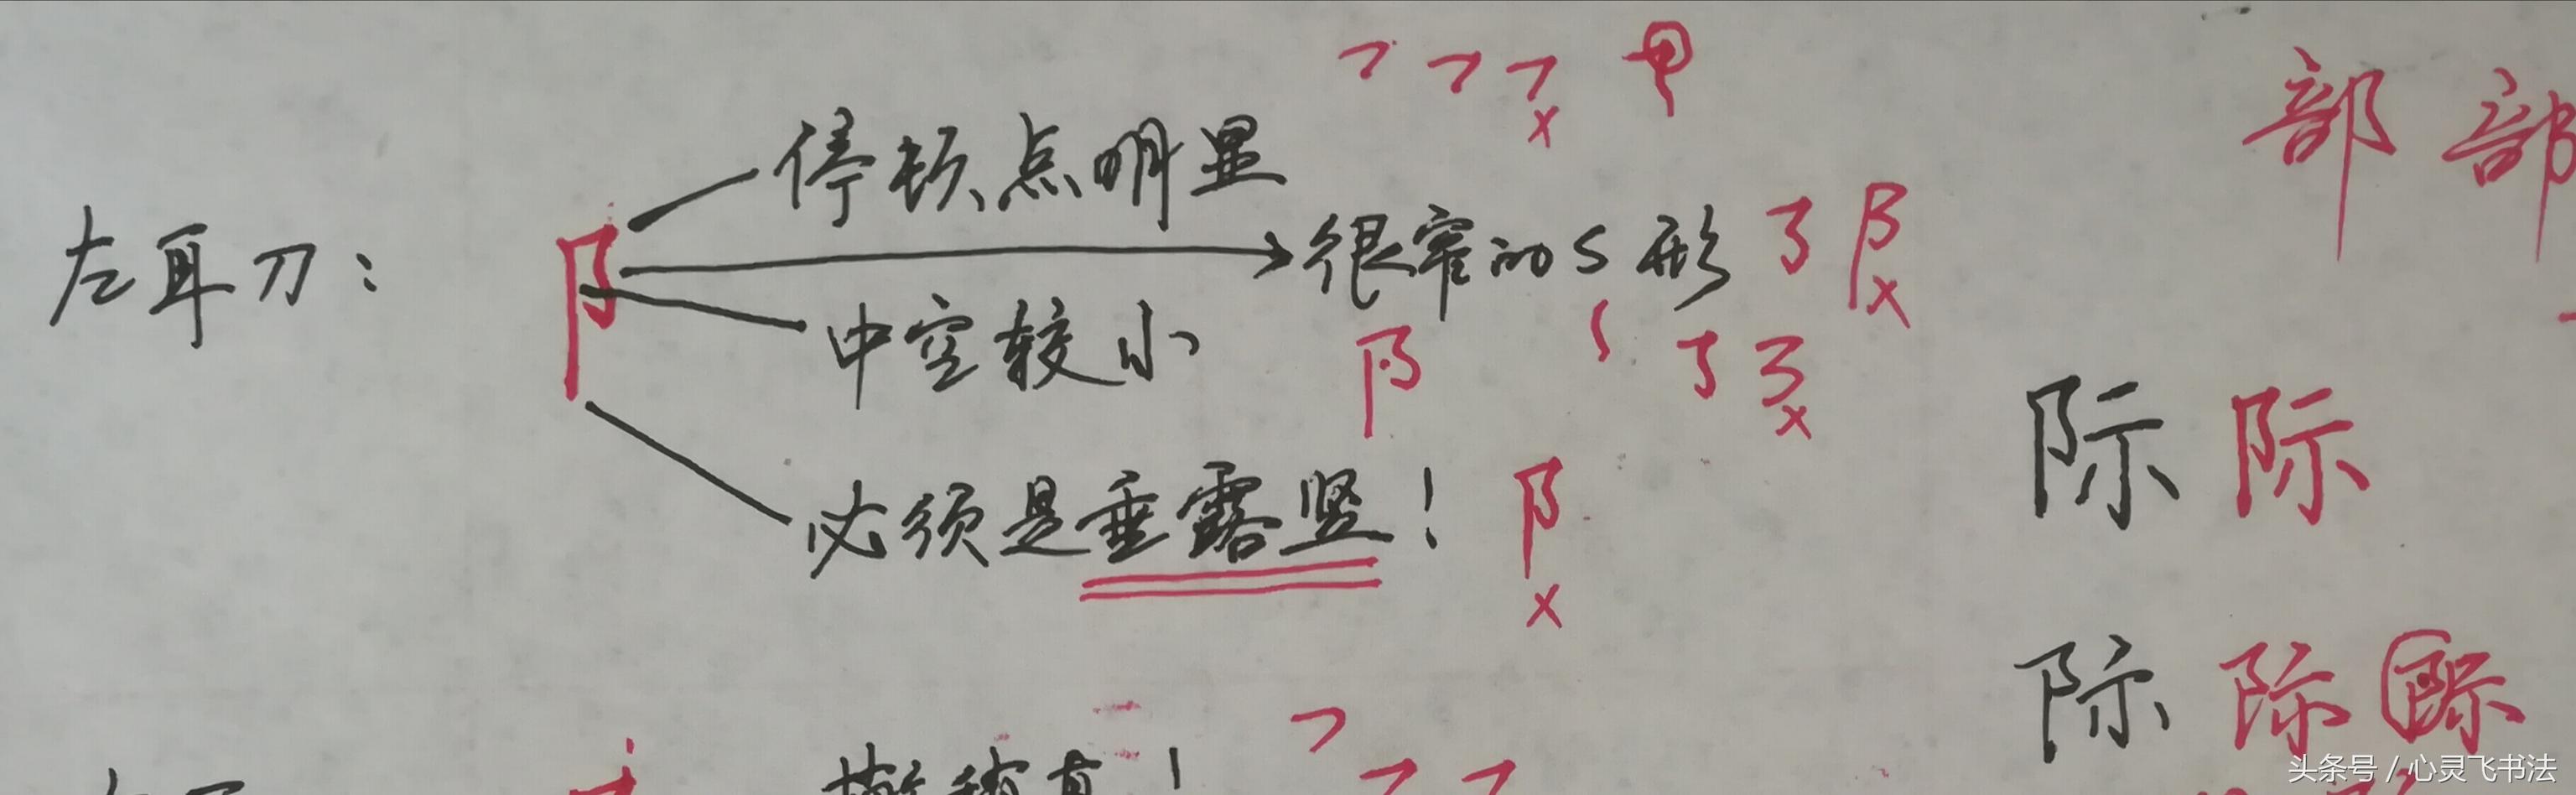 部 部
停顿点明显
左耳刀： 阝 很窄的S形
中空较小
际 际
必须是垂露竖！
际 际 际
头条号 / 心灵飞书法